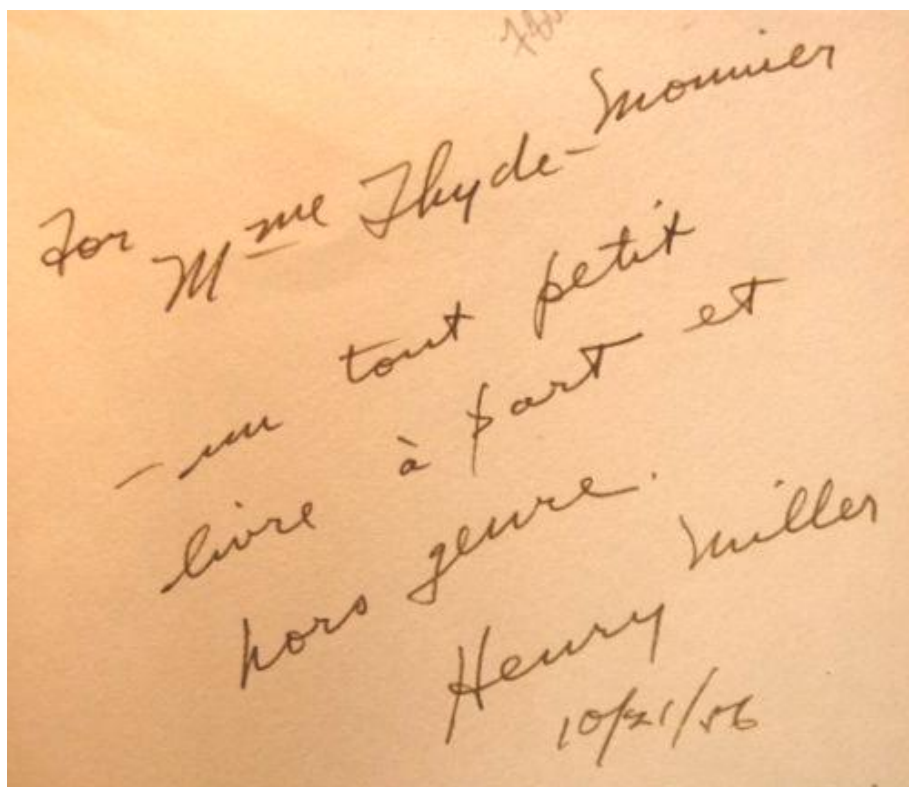 For Mme Thyde-Monnier
- un tout petit
livre à part et
hors genre.
Henry Miller
10/21/56